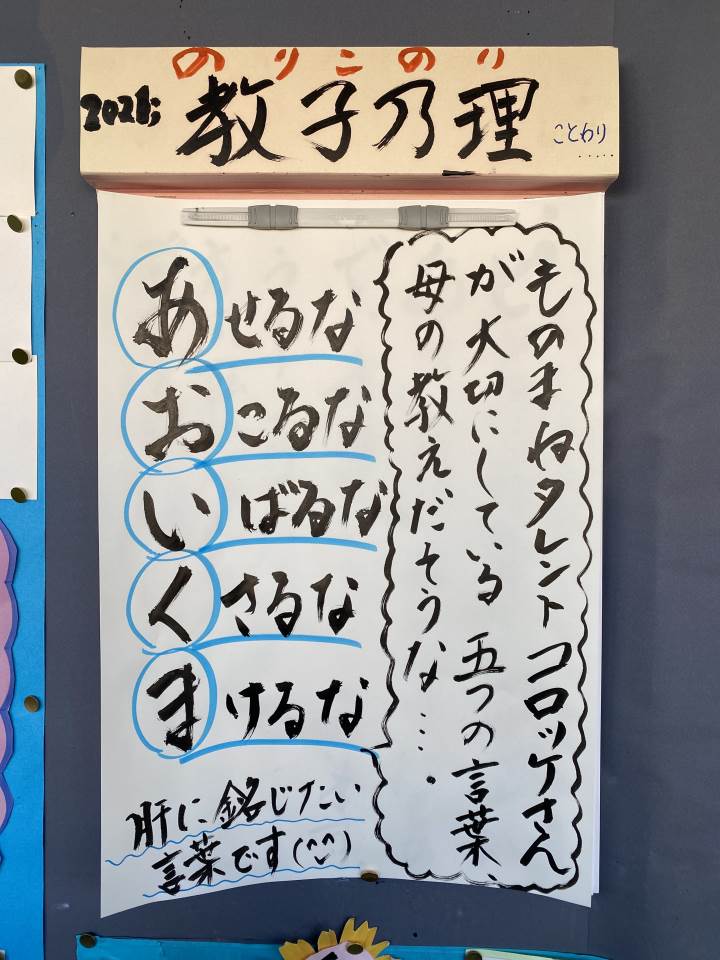 のりこのり
2021;
教子乃理
ことわり
ものまねタレント コロッケさん
が大切にしている 五つの言葉、
母の教えだそうな…。
あせるな
おこるな
いばるな
くさるな
まけるな
肝に銘じたい
言葉です(^^)